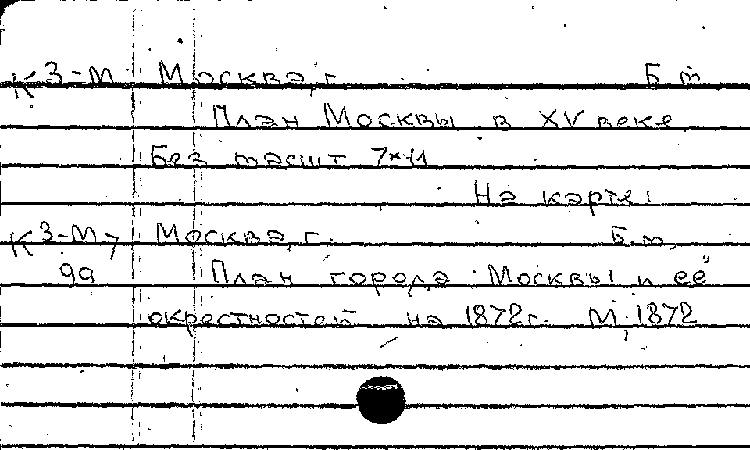 К 3-М Москва, г. Б. м.
План Москвы в XV веке
Без масшт 7×11
На карте:
К 3-М7 Москва, г. Б. м.
9а План города Москвы и её
окрестностей на 1872 г. М, 1872